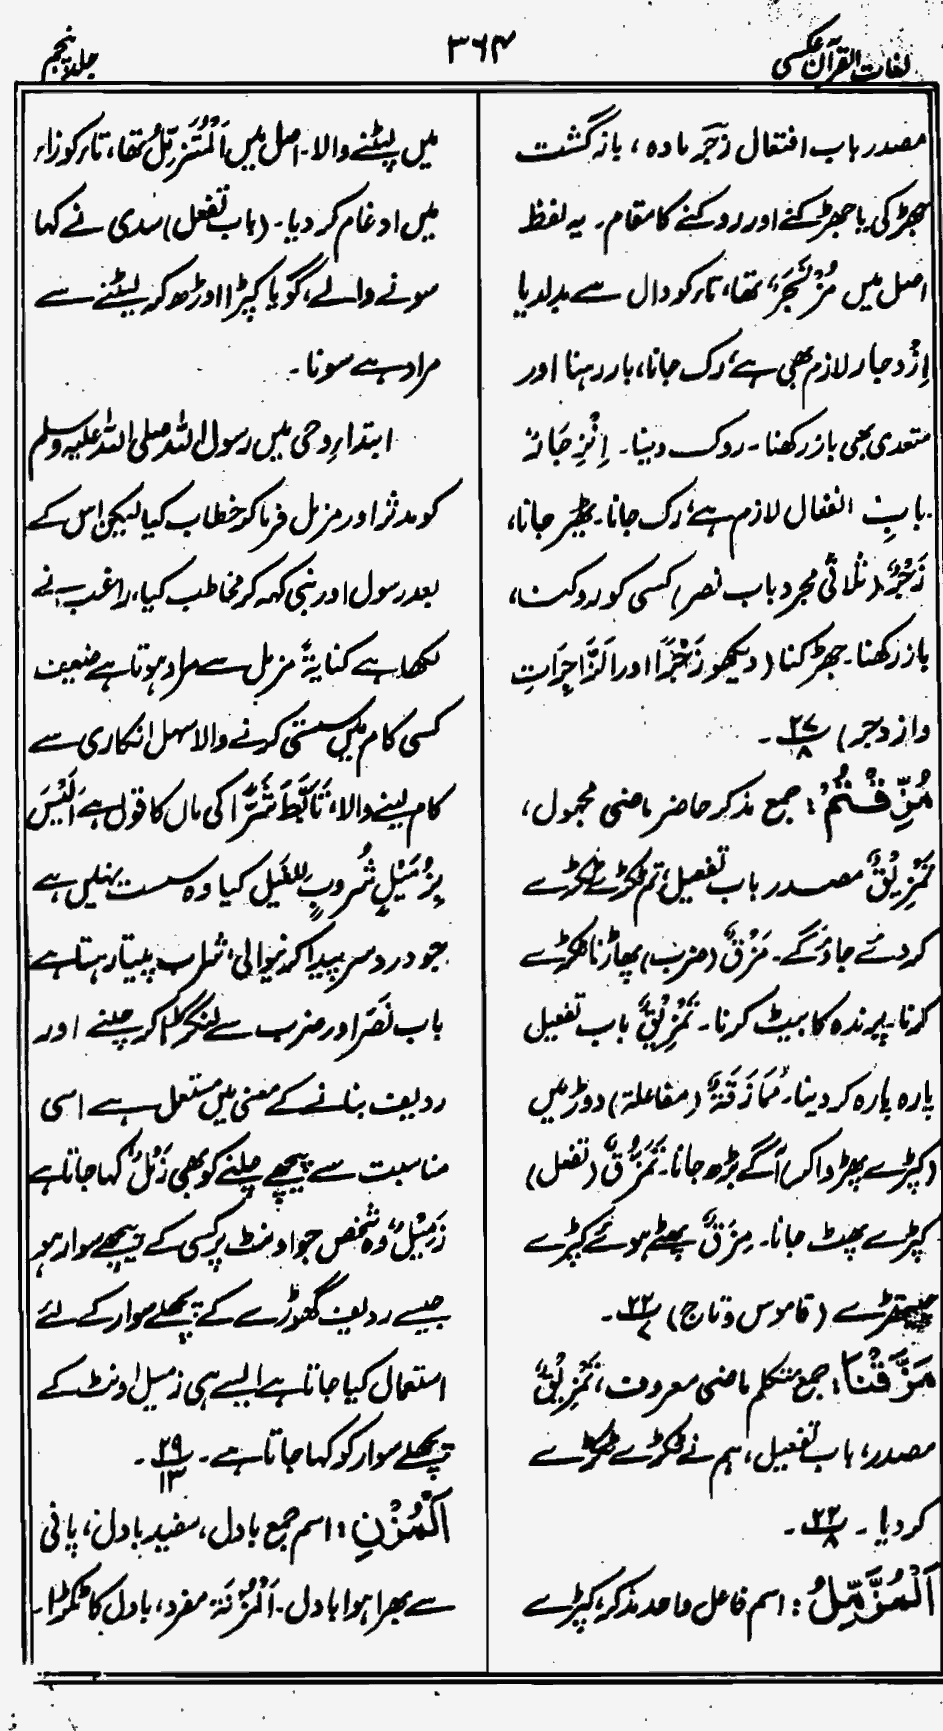 لغات القرآن عکسی
۳۶۴
جلد پنجم
مصدر باب افتعال زَجَر مادہ ، بازگشت
جھڑکی یا جھڑکنے اور روکنے کا مقام۔ یہ لفظ
اصل میں مُزْتَجَرٌ تھا، تاء کو دال سے بدلدیا
اِزْدجار لازم بھی ہے، رک جانا، باز رہنا اور
متعدی بھی باز رکھنا۔ روک دینا۔ اِنْزِجَارٌ
باب انفعال لازم ہے، رک جانا۔ ٹھیر جانا،
زَجْرٌ (ثلاثی مجرد باب نصر) کسی کو روکنا،
باز رکھنا۔ جھڑکنا (دیکھو زَجْرًا اور الزَّاجِرَاتِ
وازدجر) ۲۷/۸ ۔
مُزِّقْتُمْ : جمع مذکر حاضر ماضی مجہول ،
تَمْزِیْقٌ مصدر باب تفعیل، تم ٹکڑے ٹکڑے
کردئے جاؤگے۔ مَزْقٌ (ضرب) پھاڑنا ٹکڑے
کرنا۔ پرندہ کا بیٹ کرنا۔ تَمْزِیْقٌ باب تفعیل
پارہ پارہ کردینا۔ مُمَازَقَۃٌ (مفاعلۃ) دوڑ میں
(کپڑے پھڑواکر) آگے بڑھ جانا۔ تَمَزُّقٌ (تفعل)
کپڑے پھٹ جانا۔ مِزَقٌ پھٹے ہوئے کپڑے
چیتھڑے (قاموس وتاج) ۲۲/۷ ۔
مَزَّقْنَا : جمع متکلم ماضی معروف، تَمْزِیْقٌ
مصدر، باب تفعیل، ہم نے ٹکڑے ٹکڑے
کردیا ۔ ۲۲/۸ ۔
اَلْمُزَّمِّلُ : اسم فاعل واحد مذکر، کپڑے
میں لپٹنے والا۔ اصل میں اَلْمُتَزَمِّلُ تھا، تاء کو زاء
میں ادغام کردیا۔ (باب تفعل) سدی نے کہا
سونے والے، گویا کپڑا اوڑھ کر لیٹنے سے
مراد ہے سونا۔
ابتداءِ وحی میں رسول اللہ صلی اللہ علیہ وسلم
کو مدثر اور مزمل فرماکر خطاب کیا لیکن اس کے
بعد رسول اور نبی کہہ کر مخاطب کیا، راغب نے
لکھا ہے کنایۃً مزمل سے مراد ہوتا ہے ضعیف
کسی کام میں سستی کرنے والا سہل انکاری سے
کام لینے والا، تَاَبَّطَ شَرًّا کی ماں کا قول ہے لَیْسَ
بِزُمَّیْلٍ شُرُوبٍ لِلْقَیلِ کیا وہ سست نہیں ہے
جو درد سر پیدا کرنیوالی شراب پیتا رہتا ہے
باب نَصَر اور ضرب سے لنگڑاکر چلنے اور
ردیف بنانے کے معنی میں مستعمل ہے اسی
مناسبت سے پیچھے چلنے کو بھی زَمْلٌ کہا جاتا ہے
زَمِیْلٌ وہ شخص جو اونٹ پر کسی کے پیچھے سوار ہو
جیسے ردیف گھوڑے کے پچھلے سوار کے لئے
استعمال کیا جاتا ہے ایسے ہی زمیل اونٹ کے
پچھلے سوار کو کہا جاتا ہے۔ ۲۹/۱۳ ۔
اَلْمُزْنِ : اسم جمع بادل ، سفید بادل ، پانی
سے بھرا ہوا بادل۔ اَلْمُزْنَۃ مفرد، بادل کا ٹکڑا۔